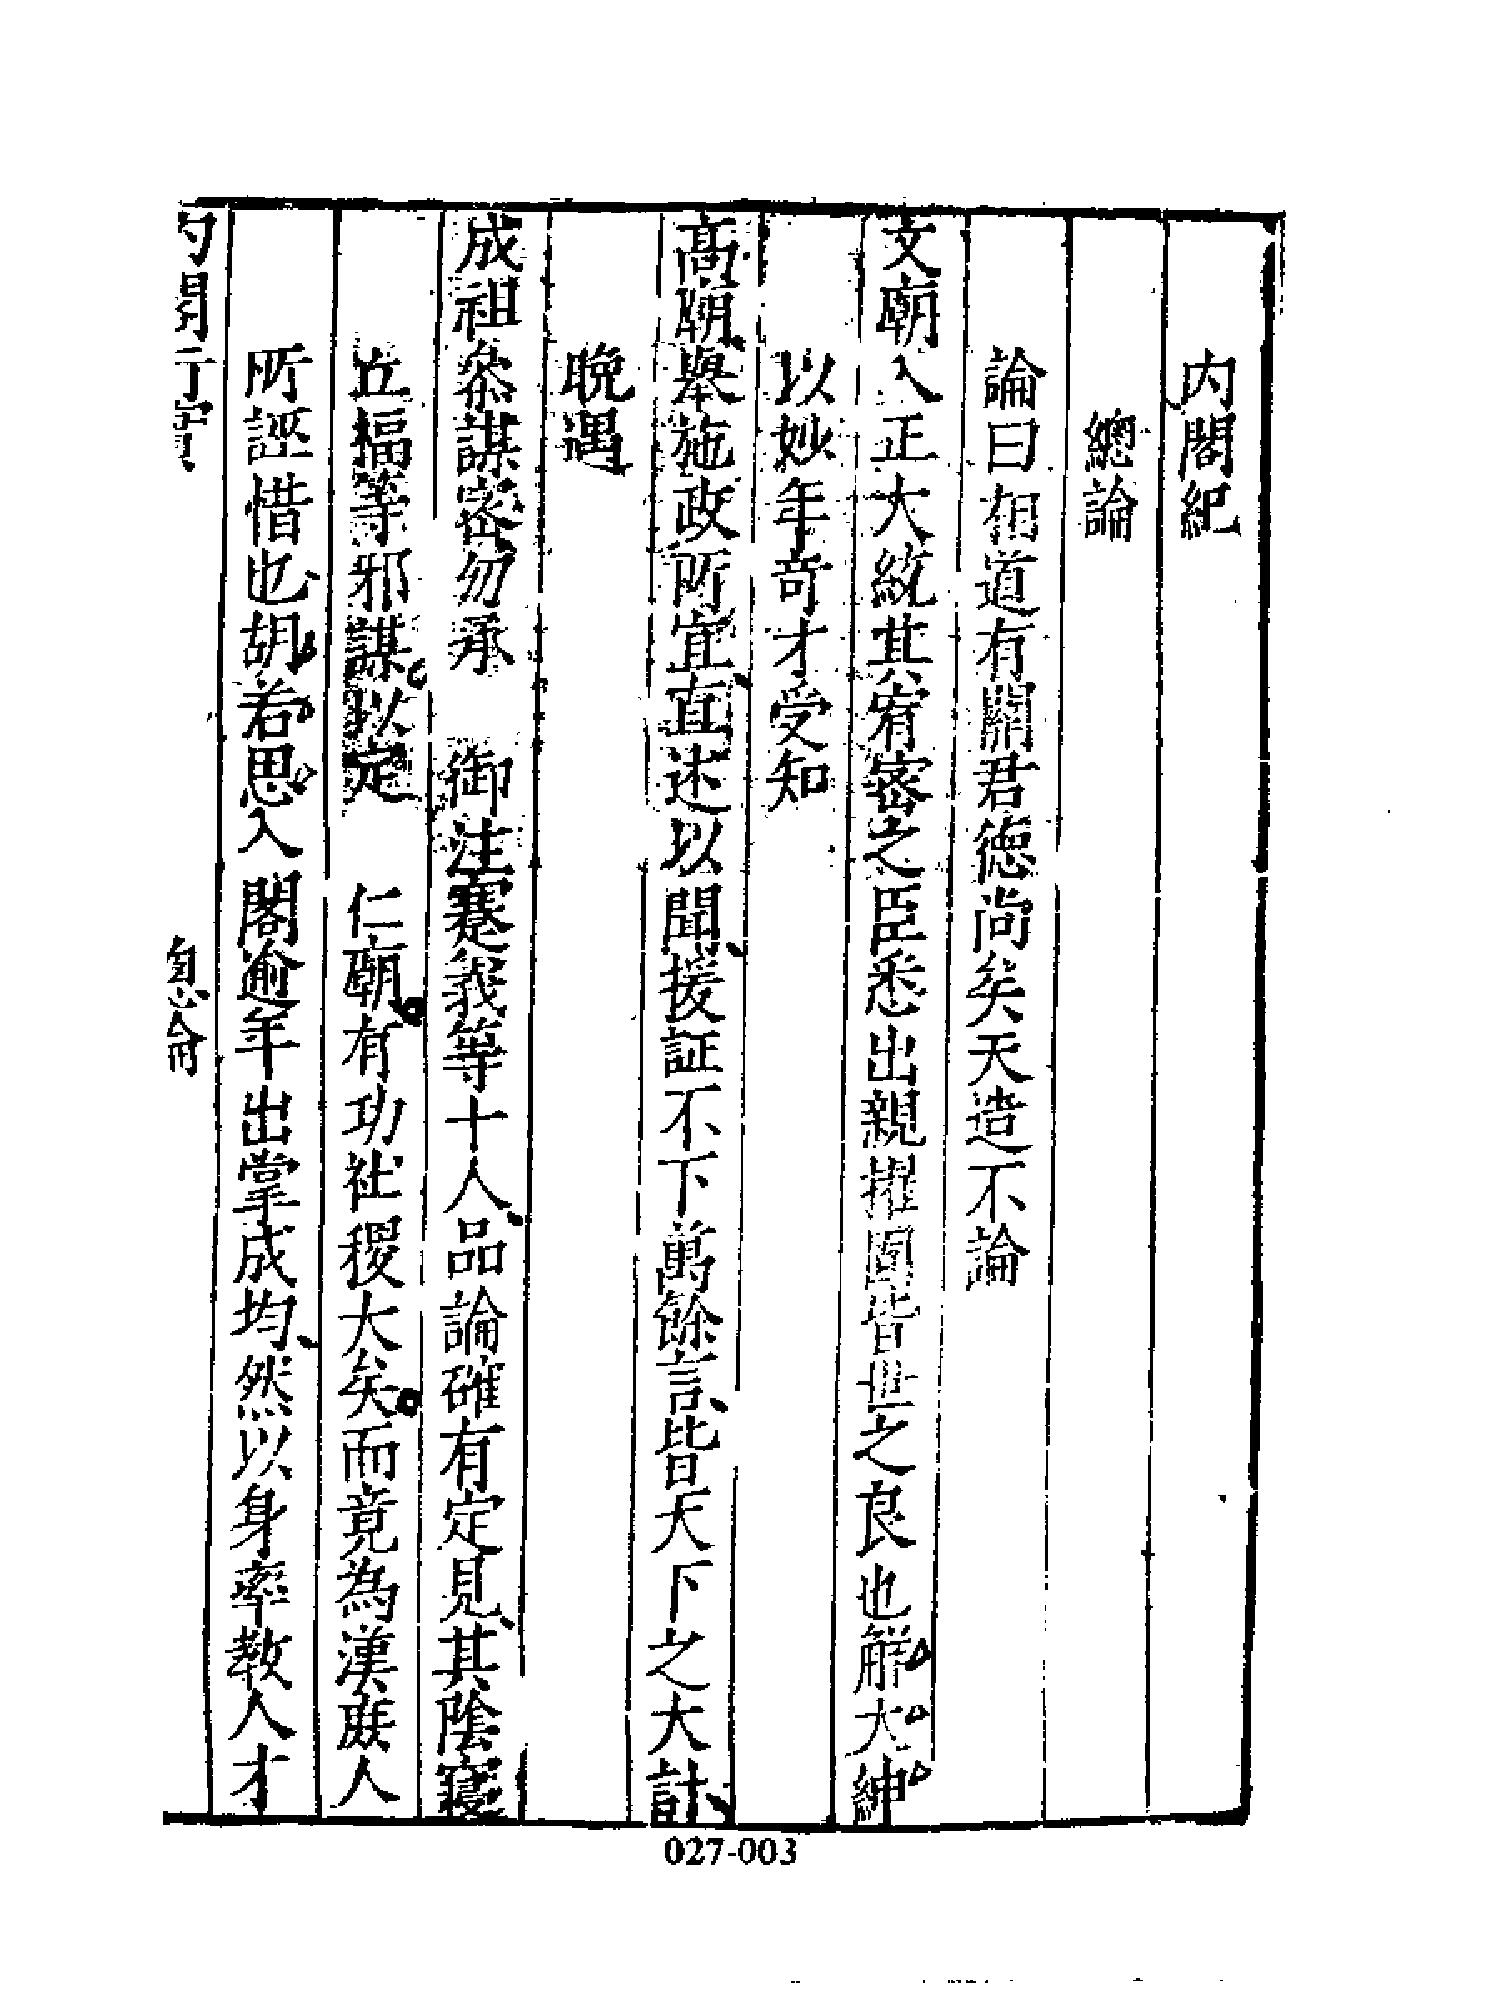 內閣紀
總論
論曰相道有關君德尚矣天造不論
文廟入正大統其宥密之臣悉出親擢閣皆世之良也解大紳
以妙年奇才受知
高廟舉施政所宜直述以聞援証不下萬餘言皆天下之大計
晚遇
成祖叅謀密勿承 御注蹇義等十人品論確有定見其陰寢
丘福等邪謀以定 仁廟有功社稷大矣而竟為漢庶人
所誣惜也胡若思入閣逾年出掌成均然以身率教人才
內閣行實 總論
027-003